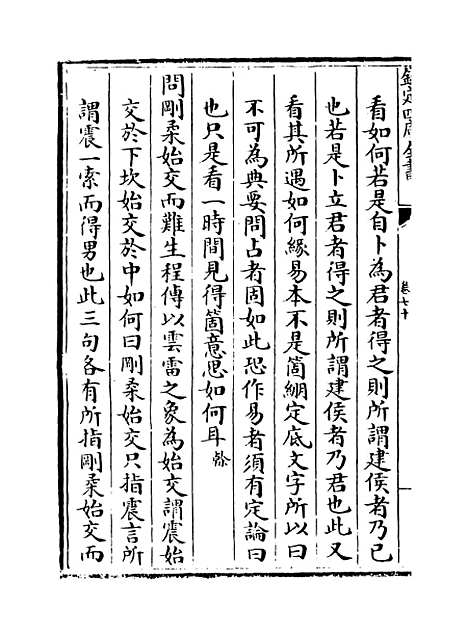 欽定四庫全書
卷七十
看如何若是自卜為君者得之則所謂建侯者乃已
也若是卜立君者得之則所謂建侯者乃君也此又
看其所遇如何緣易本不是箇綳定底文字所以曰
不可為典要問占者固如此恐作易者須有定論曰
也只是看一時間見得箇意思如何耳&#x20;礥
問剛柔始交而難生程傳以雲雷之象為始交謂震始
交於下坎始交於中如何曰剛柔始交只指震言所
謂震一索而得男也此三句各有所指剛柔始交而